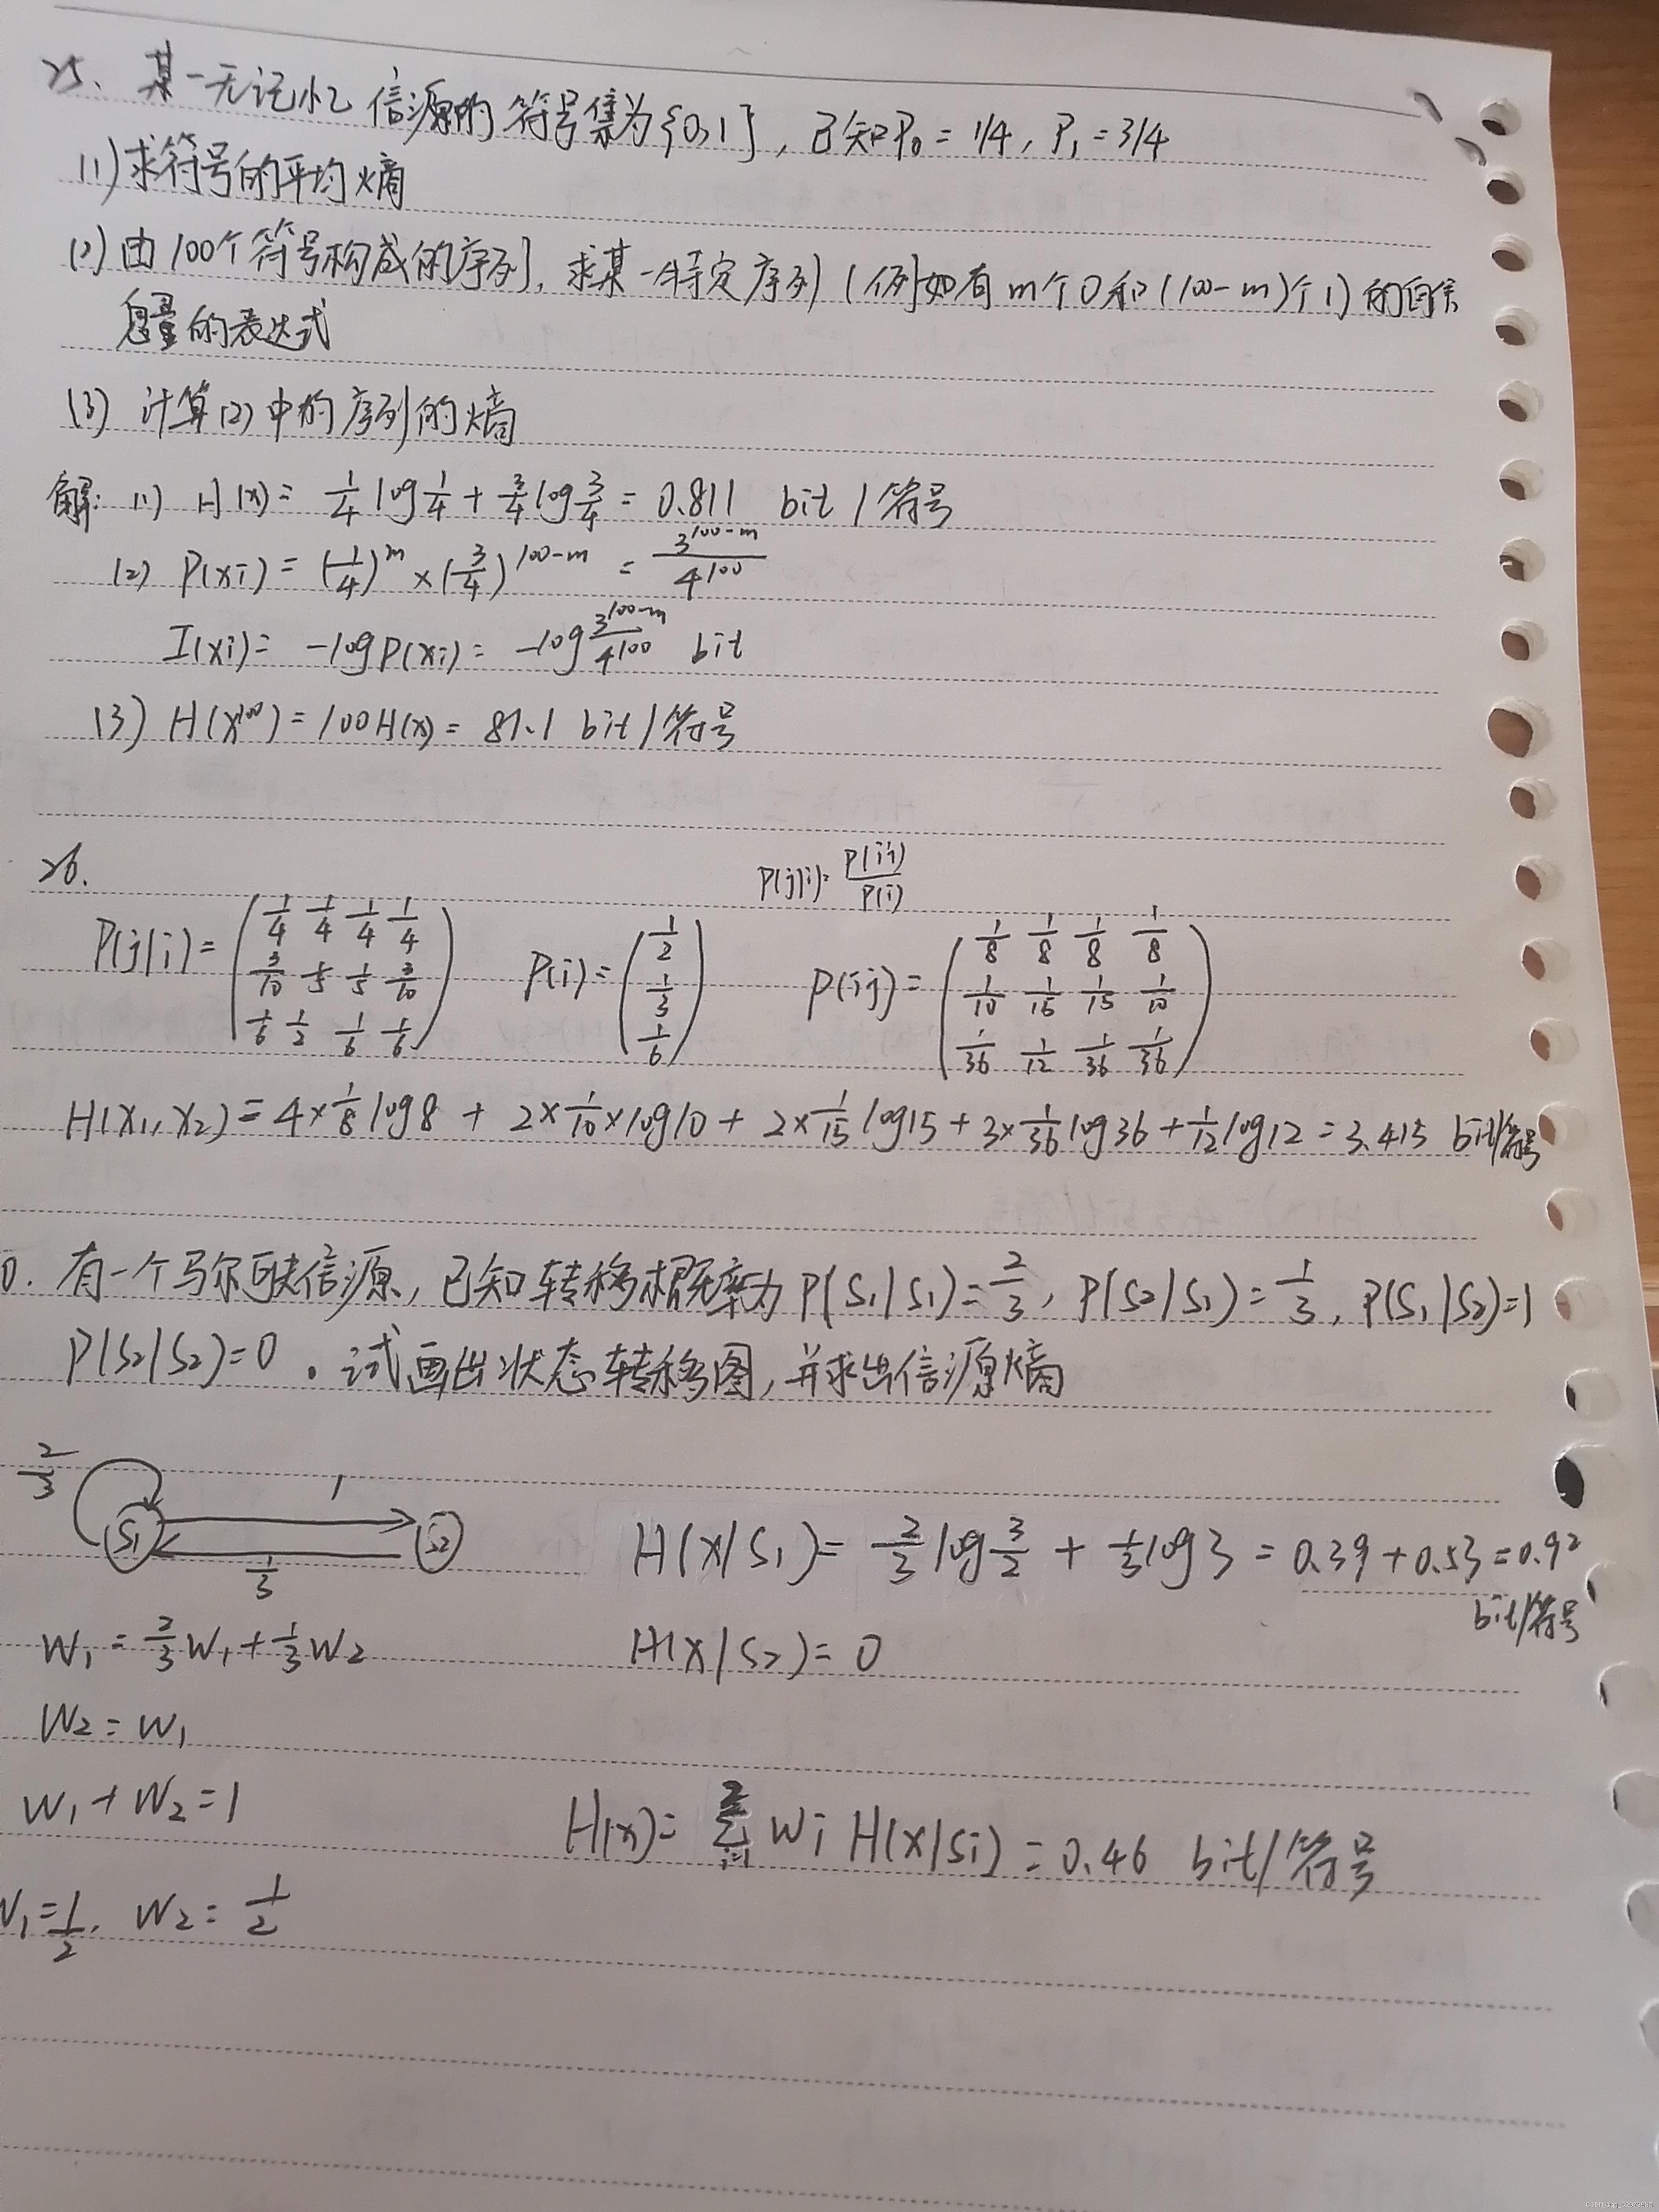 25、某一无记忆信源的符号集为{0,1}，已知P₀=1/4，P₁=3/4
(1)求符号的平均熵
(2)由100个符号构成的序列，求某一特定序列(例如有m个0和(100-m)个1)的自信
息量的表达式
(3) 计算(2)中的序列的熵
解: (1) H(x)= 1/4 log 1/4 + 3/4 log 3/4 = 0.811 bit/符号
(2) P(xi) = (1/4)^m × (3/4)^(100-m) = 3^(100-m)/4^100
I(xi)= -log P(xi) = -log 3^(100-m)/4^100 bit
(3) H(X^100) = 100H(x) = 81.1 bit/符号
26.
P(j|i)= P(ij)/P(i)
P(j|i) = (1/4 1/4 1/4 1/4; 3/10 1/5 1/5 3/10; 1/6 1/2 1/6 1/6) P(i)= (1/2; 1/3; 1/6) P(ij) = (1/8 1/8 1/8 1/8; 1/10 1/15 1/15 1/10; 1/36 1/12 1/36 1/36)
H(X₁,X₂) = 4×1/8 log8 + 2×1/10×log10 + 2×1/15 log15 + 3×1/36 log36 + 1/12 log12 = 3.415 bit/符号
0. 有一个马尔可夫信源，已知转移概率为P(S₁|S₁)=2/3, P(S₂|S₁)=1/3, P(S₁|S₂)=1
P(S₂|S₂)=0。试画出状态转移图，并求出信源熵
2/3
1
S₁ S₂
1/3
H(X|S₁)= 2/3 log 3/2 + 1/3 log3 = 0.39+0.53=0.92
bit/符号
W₁ = 2/3 W₁ + 1/3 W₂
H(X|S₂)= 0
W₂ = W₁
W₁ + W₂ = 1
H(x)= Σ(i=1→2) Wi H(X|Si) = 0.46 bit/符号
W₁=1/2, W₂ = 1/2